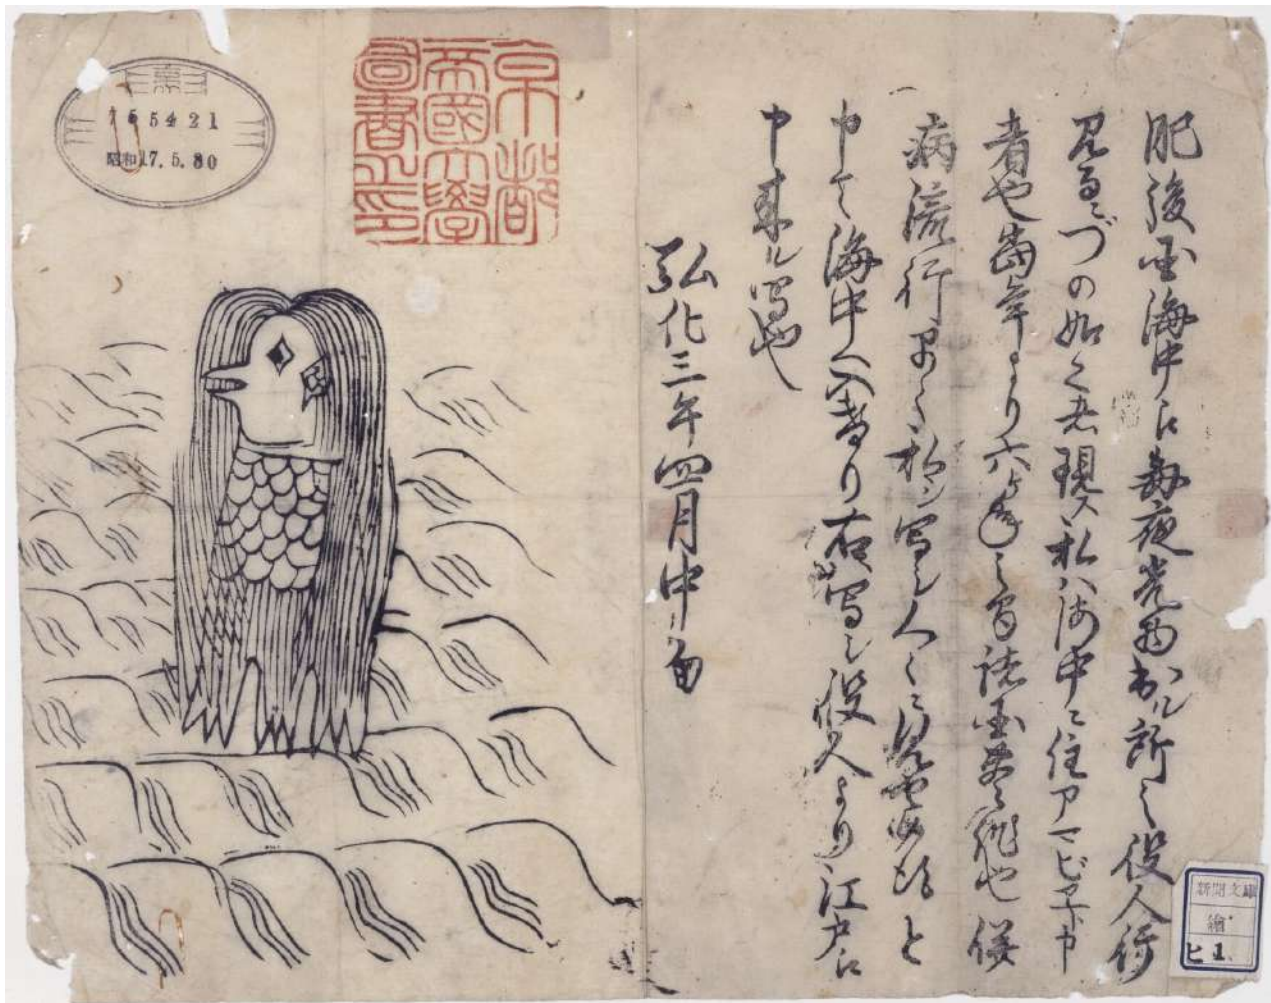 肥後国海中江毎夜光物出ル所之役人行
見るニづの如く者現ス私ハ海中ニ住アマビヱト申
者也當年より六ヶ年之間諸国豊作也併
病流行早々私ヲ写シ人々ニ見セ候得と
申て海中へ入けり右写シ役人より江戸江
申来ル写也
弘化三年四月中旬
京都
帝國大學
圖書之印
165421
昭和17.5.30
新聞文庫
繪
ヒ1.